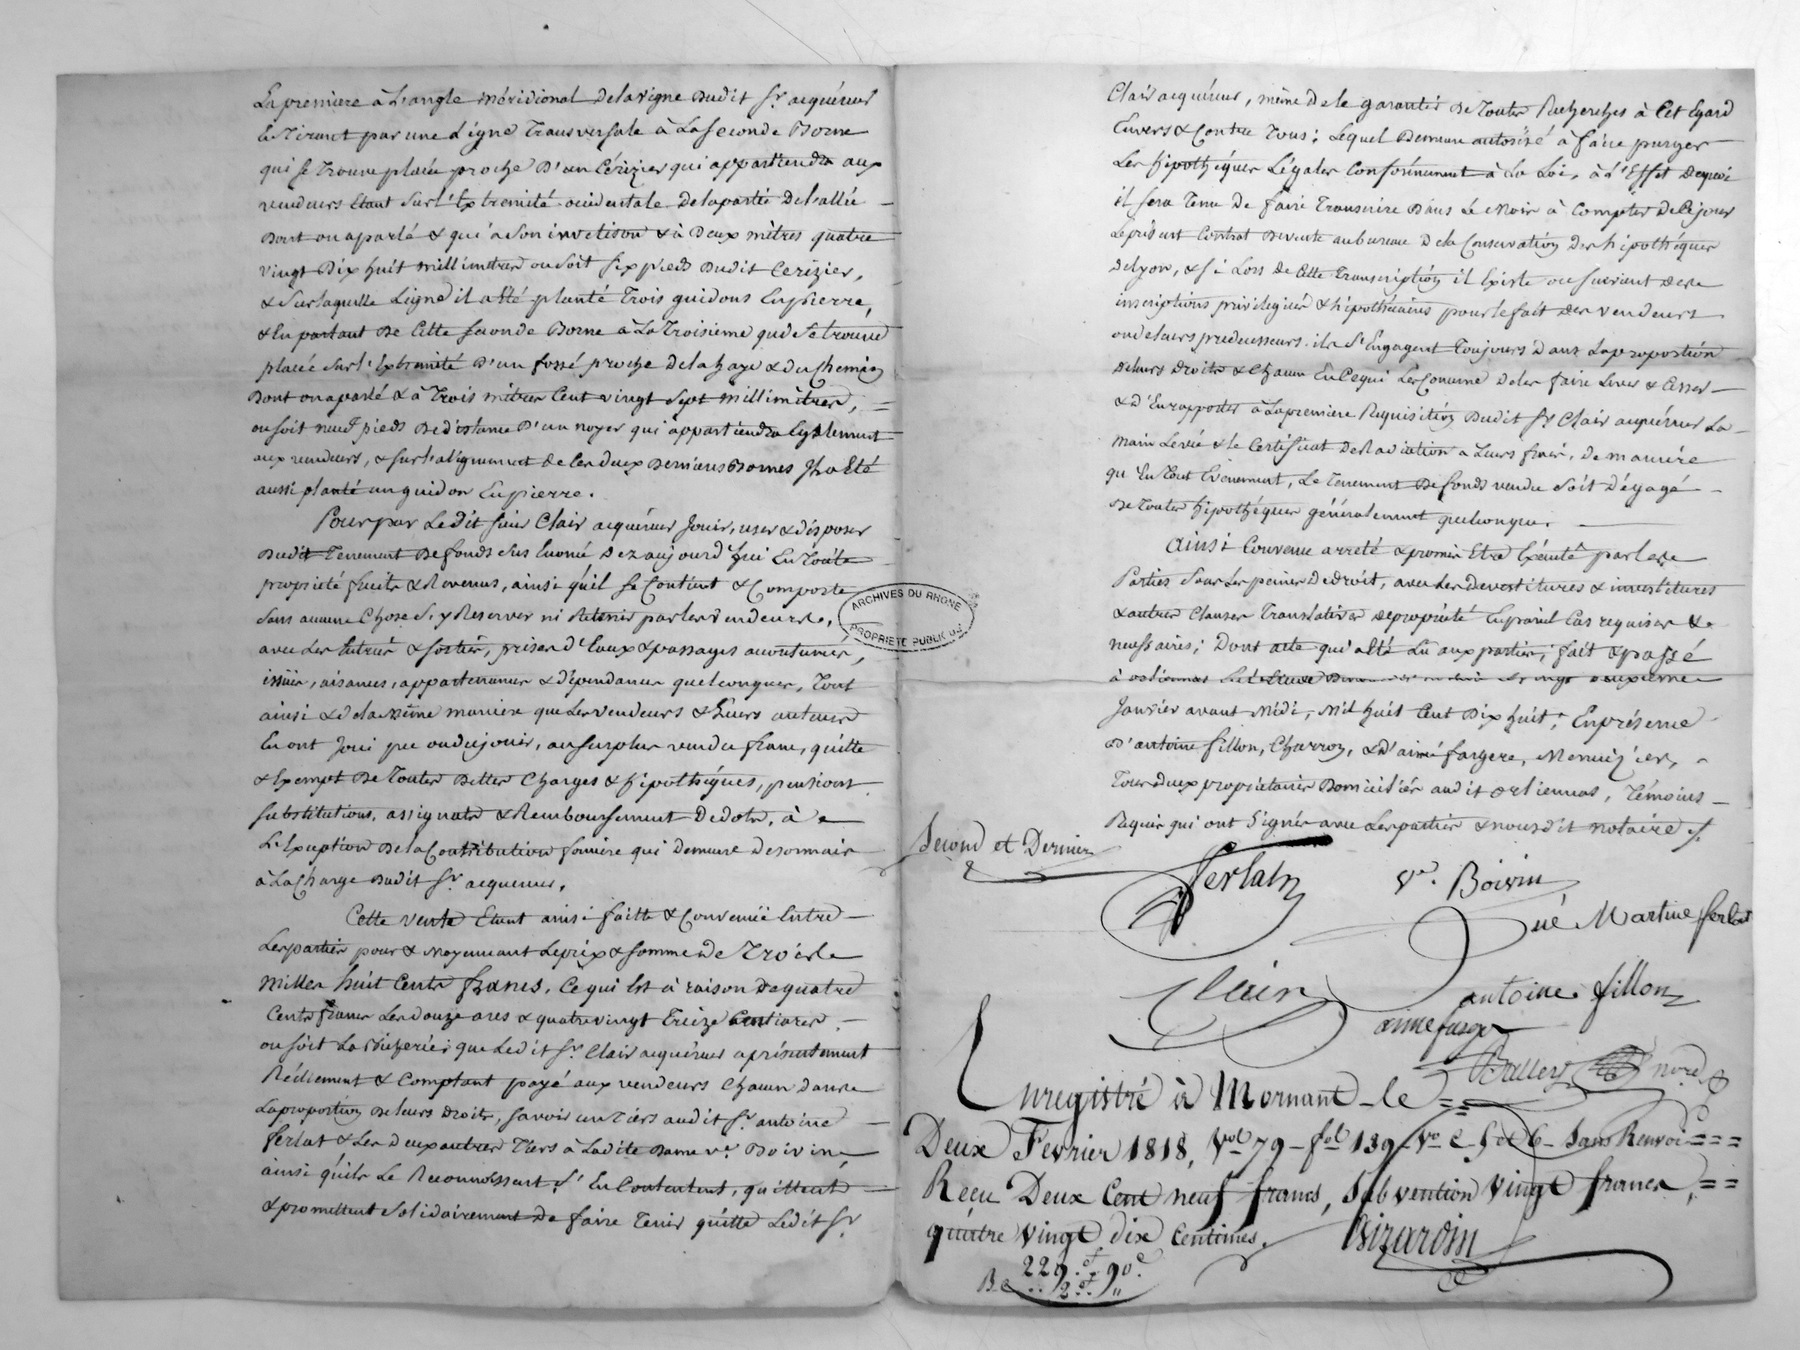 La premiere à L'angle Méridional de la vigne dudit Sr. acquéreur
le Tirant par une Ligne Transversale à La seconde Borne
qui se trouve placée proche D'un Cérizier qui appartiendra aux
vendeurs Etant sur l'Extremité occidentale de la partie de l'allée
Dont on a parlé & qui a son invetison & à Deux mètres quatre
vingt Dix huit millimètres ou soit six pieds Dudit Cerizier,
& sur laquelle Ligne il a Eté planté Trois guidons En pierre,
& En partant De Cette seconde Borne à La Troisieme qui se trouve
placée sur l'Extremité D'un fossé proche de la haye & du Chemin
Dont on a parlé & à Trois mètres Cent vingt sept Millimètres,
ou soit neuf pieds De distance D'un noyer qui appartiendra Egalement
aux vendeurs, & sur l'alignement de Ces deux Dernieres Bornes Il a Eté
aussi planté un guidon En pierre.
Pour par Ledit sieur Clair acquéreur Jouir, user & disposer
Dudit Tenement De fonds sus Enoncé, Dez aujourd'hui En Toute
propriété fruits & Revenus, ainsi qu'il se Contient & Comporte
sans aucune Chose s'y Reserver ni Retenir par les vendeurs,
avec Les Entrées & sorties, prises d'Eaux & passages accoutumés,
issües, aisances, appartenances & dépendances quelconques, Tout
ainsi & de la même maniere que Les vendeurs & Leurs auteurs
En ont Joui peu ou du jouir, au surplus vendu franc, quitte
& Exempt De Toutes Dettes Charges & hipothéques, pensions
substitutions, assignats & Remboursement de dots, à
L'Exception De la Contribution fonciere qui Demeure desormais
à La Charge Dudit Sr. acquereur.
Cette vente Etant ainsi faitte & Convenüe Entre
Les parties pour & Moyennant Le prix & somme de Trois
Milles huit Cents francs, Ce qui Est à raison de quatre
Cents francs Les douze ares & quatre vingt Treize Centiares
ou soit La Bicherée; que Ledit Sr. Clair acquéreur a présentement
Réellement & Comptant payé aux vendeurs Chacun dans
La proportion De leurs Droits, savoir un Tiers audit Sr. antoine
ferlat & Les deux autres Tiers à Ladite Dame ve. Boivin,
ainsi qu'ils Le Reconnoissent, s'En Contentent, quittent
& promettent solidairement de faire Tenir quitte Ledit Sr.
ARCHIVES DU RHONE
PROPRIETE PUBLIQUE
Clair acquéreur, même de le garantir De Toutes Recherches à Cet Egard
Envers & Contre Tous; Lequel Demeure autorisé à faire purger
Les hipothéques Légales Conformément à La Loi, à L'Effet de quoi
il sera Tenu de faire Transcrire Dans Le Mois à Compter de Ce jour
Le présent Contrat De vente au bureau De la Conservation Des hipothéques
de Lyon, & si Lors de Cette Transcription il Existe ou survient des
inscriptions privilegiées & hipothécaires pour le fait Des vendeurs
ou de Leurs predecesseurs ils s'Engagent Toujours Dans La proportion
de Leurs Droits & Chacun En Ce qui Les Concerne de les faire Lever & Cesser
& d'En rapporter à La premiere Requisition Dudit Sr. Clair acquéreur La
main Levée & le Certificat De Radiation à Leurs frais, de maniére
qu'En Tout Evenement, Le Tenement De fonds vendu soit Dégagé
De Toutes hipothéques généralement quelconques.
Ainsi Convenu arreté & promis Etre Exécuté par les
Parties sous Les peines De droit, avec Les Devestitures & investitures
& autres Clauses Translatives de propriété En pareil Cas requises &
necessaires; Dont acte qui a Eté Lu aux parties; fait & passé
à orliennas Le vingt deuxieme
Janvier avant Midi, Mil huit Cent Dix huit; En présence
D'antoine fillon, Charron, & D'aimé fargere, Menuizier,
Tous deux propriétaires Domiciliés audit orliennas, Témoins
Requis qui ont signé avec Les parties & nousdit notaire
Second et Dernier
Ferlat
Ve. Boivin
née Martine ferlat
Clair
antoine fillon
aimé farge
nore
Enregistré à Mornant le
Deux Fevrier 1818, Vol 79 fol 139 Vo C. 5 et 6 Sans Renvoi
Reçu Deux Cent neuf francs, Subvention Vingt francs,
quatre vingt dix Centimes.
Bizardin
229.f 90.c